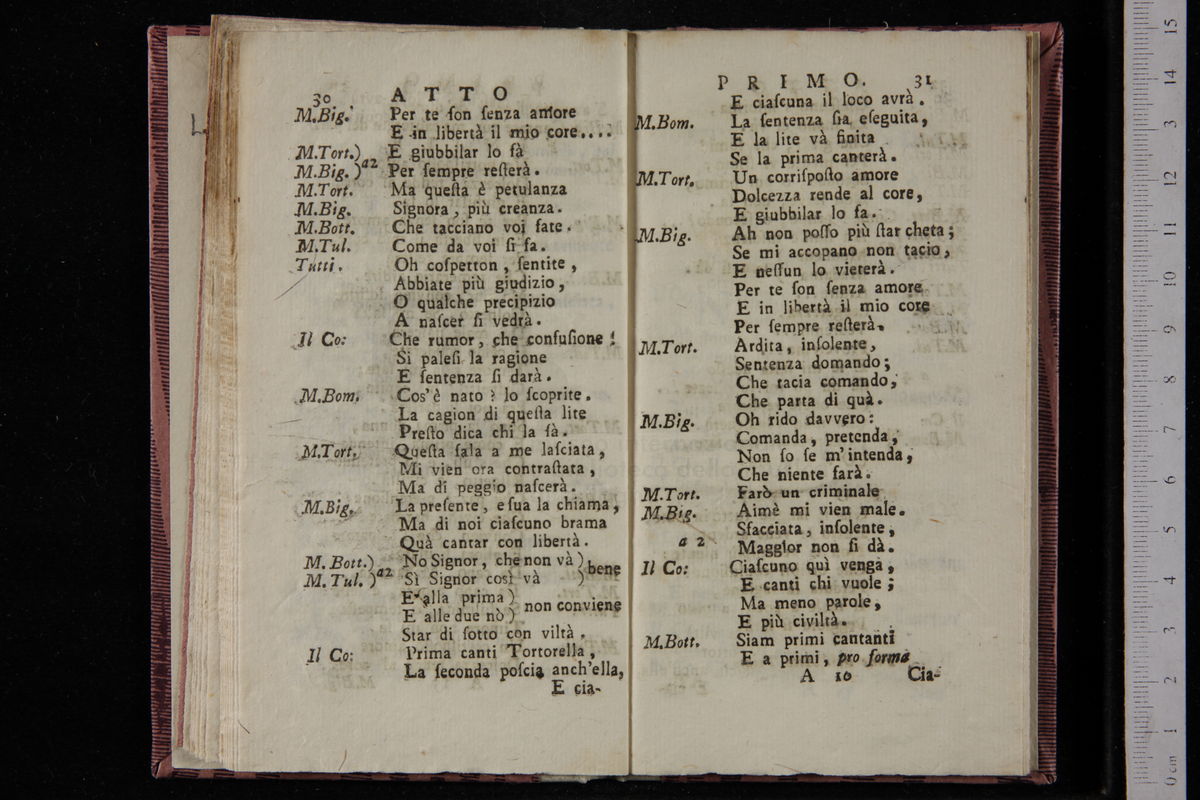 30 ATTO
M.Big. Per te ſon ſenza amore
E in libertà il mio core....
M.Tort.) E giubbilar lo fà
M.Big. )a2 Per ſempre reſterà.
M.Tort. Ma queſta è petulanza
M.Big. Signora, più creanza.
M.Bott. Che tacciano voi fate.
M.Tul. Come da voi ſi fa.
Tutti. Oh coſpetton, ſentite,
Abbiate più giudizio,
O qualche precipizio
A naſcer ſi vedrà.
Il Co: Che rumor, che confuſione!
Si paleſi la ragione
E ſentenza ſi darà.
M.Bom. Cos'è nato? lo ſcoprite.
La cagion di queſta lite
Preſto dica chi la ſà.
M.Tort. Queſta ſala a me laſciata,
Mi vien ora contraſtata,
Ma di peggio naſcerà.
M.Big. La preſente, e ſua la chiama,
Ma di noi ciaſcuno brama
Quà cantar con libertà.
M. Bott.) No Signor, che non và)
M. Tul. )a2 Sì Signor così và ) bene
E alla prima)
E alle due nò) non conviene
Star di ſotto con viltà.
Il Co: Prima canti Tortorella,
La ſeconda poſcia anch'ella,
E cia-
PRIMO. 31
E ciaſcuna il loco avrà.
M.Bom. La ſentenza ſia eſeguita,
E la lite và finita
Se la prima canterà.
M.Tort. Un corriſpoſto amore
Dolcezza rende al core,
E giubbilar lo fa.
M.Big. Ah non poſſo più ſtar cheta;
Se mi accopano non tacio,
E neſſun lo vieterà.
Per te ſon ſenza amore
E in libertà il mio core
Per ſempre reſterà.
M.Tort. Ardita, inſolente,
Sentenza domando;
Che tacia comando,
Che parta di quà.
M.Big. Oh rido davvero:
Comanda, pretenda,
Non ſo ſe m'intenda,
Che niente farà.
M.Tort. Farò un criminale
M.Big. Aimè mi vien male.
Sfacciata, inſolente,
a 2 Maggior non ſi dà.
Il Co: Ciaſcuno quì venga,
E canti chi vuole;
Ma meno parole,
E più civiltà.
M.Bott. Siam primi cantanti
E a primi, pro forma
A 10 Cia-
0 cm 1 2 3 4 5 6 7 8 9 10 11 12 3 14 15